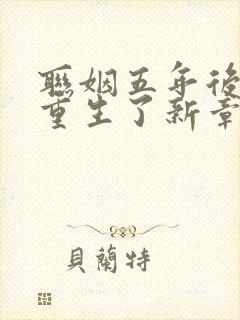 聯姻五年後
重生了新章
貝蘭特